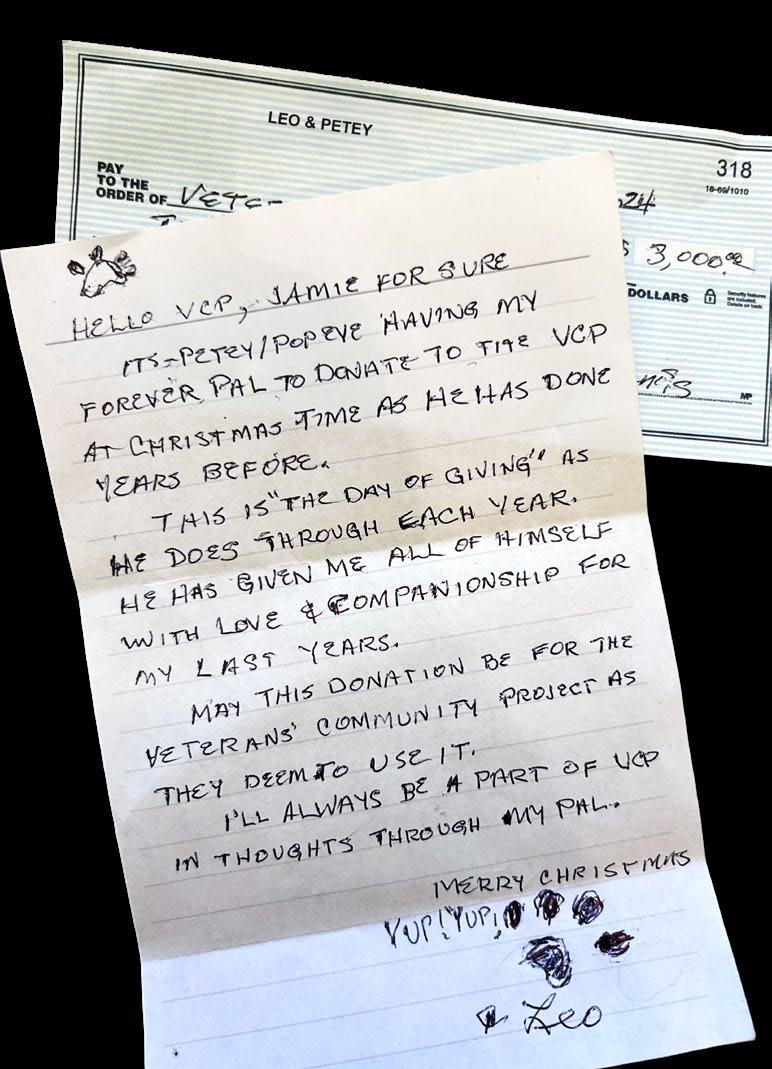 LEO & PETEY
318
18-69/1010
PAY
TO THE
ORDER OF
24
$ 3,000.00
DOLLARS
Security features
are included.
Details on back.
MP
HELLO VCP, JAMIE FOR SURE
ITS-PETEY/POPEYE HAVING MY
FOREVER PAL TO DONATE TO THE VCP
AT CHRISTMAS TIME AS HE HAS DONE
YEARS BEFORE.
THIS IS "THE DAY OF GIVING" AS
HE DOES THROUGH EACH YEAR.
HE HAS GIVEN ME ALL OF HIMSELF
WITH LOVE & COMPANIONSHIP FOR
MY LAST YEARS.
MAY THIS DONATION BE FOR THE
VETERANS' COMMUNITY PROJECT AS
THEY DEEM TO USE IT.
I'LL ALWAYS BE A PART OF VCP
IN THOUGHTS THROUGH MY PAL.
MERRY CHRISTMAS
YUP! YUP!
& Leo